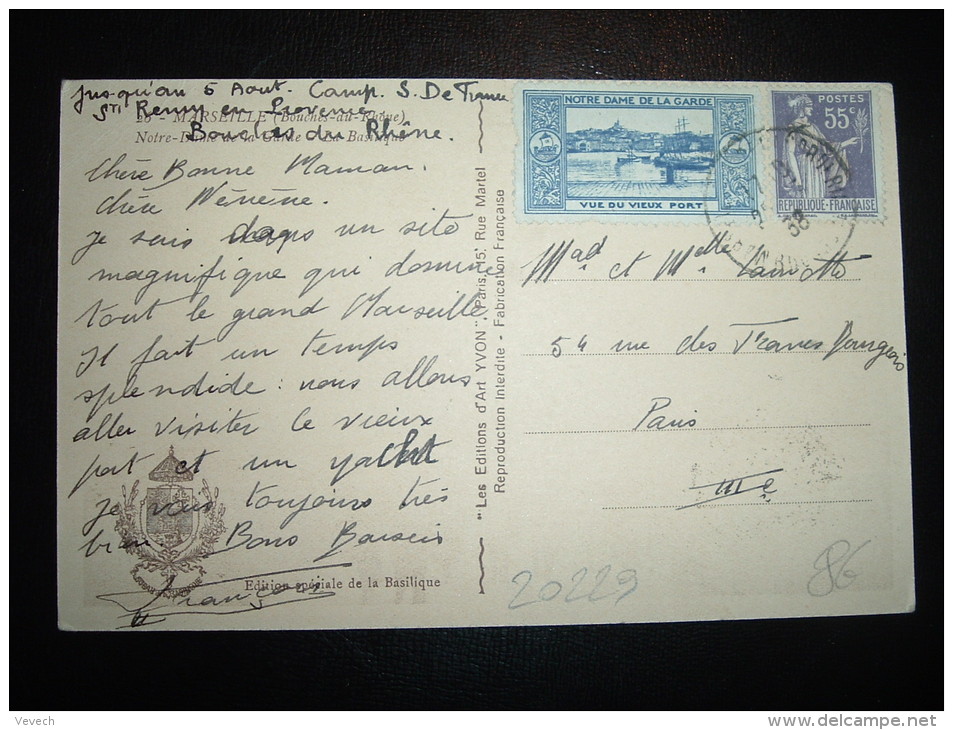 Jusqu'au 5 Aout. Camp. S. De France
St Remy en Provence
Bouches du Rhône.
26 - MARSEILLE (Bouches-du-Rhône)
Notre-Dame de la Garde - La Basilique
Chère Bonne Maman.
Chère Nénène.
Je suis dans un site
magnifique qui domine
tout le grand Marseille
Il fait un temps
splendide : nous allons
aller visiter le vieux
port et un yacht
je vais toujours très
bien. Bons Baisers
François
Edition spéciale de la Basilique
"Les Editions d'Art YVON", Paris, 15, Rue Martel
Reproduction Interdite - Fabrication Française
NOTRE DAME DE LA GARDE
VUE DU VIEUX PORT
POSTES
55c
REPUBLIQUE-FRANÇAISE
38
Mad et Melle
54 rue des Francs Bourgeois
Paris
IIIe
20229
86
Vevech
www.delcampe.net